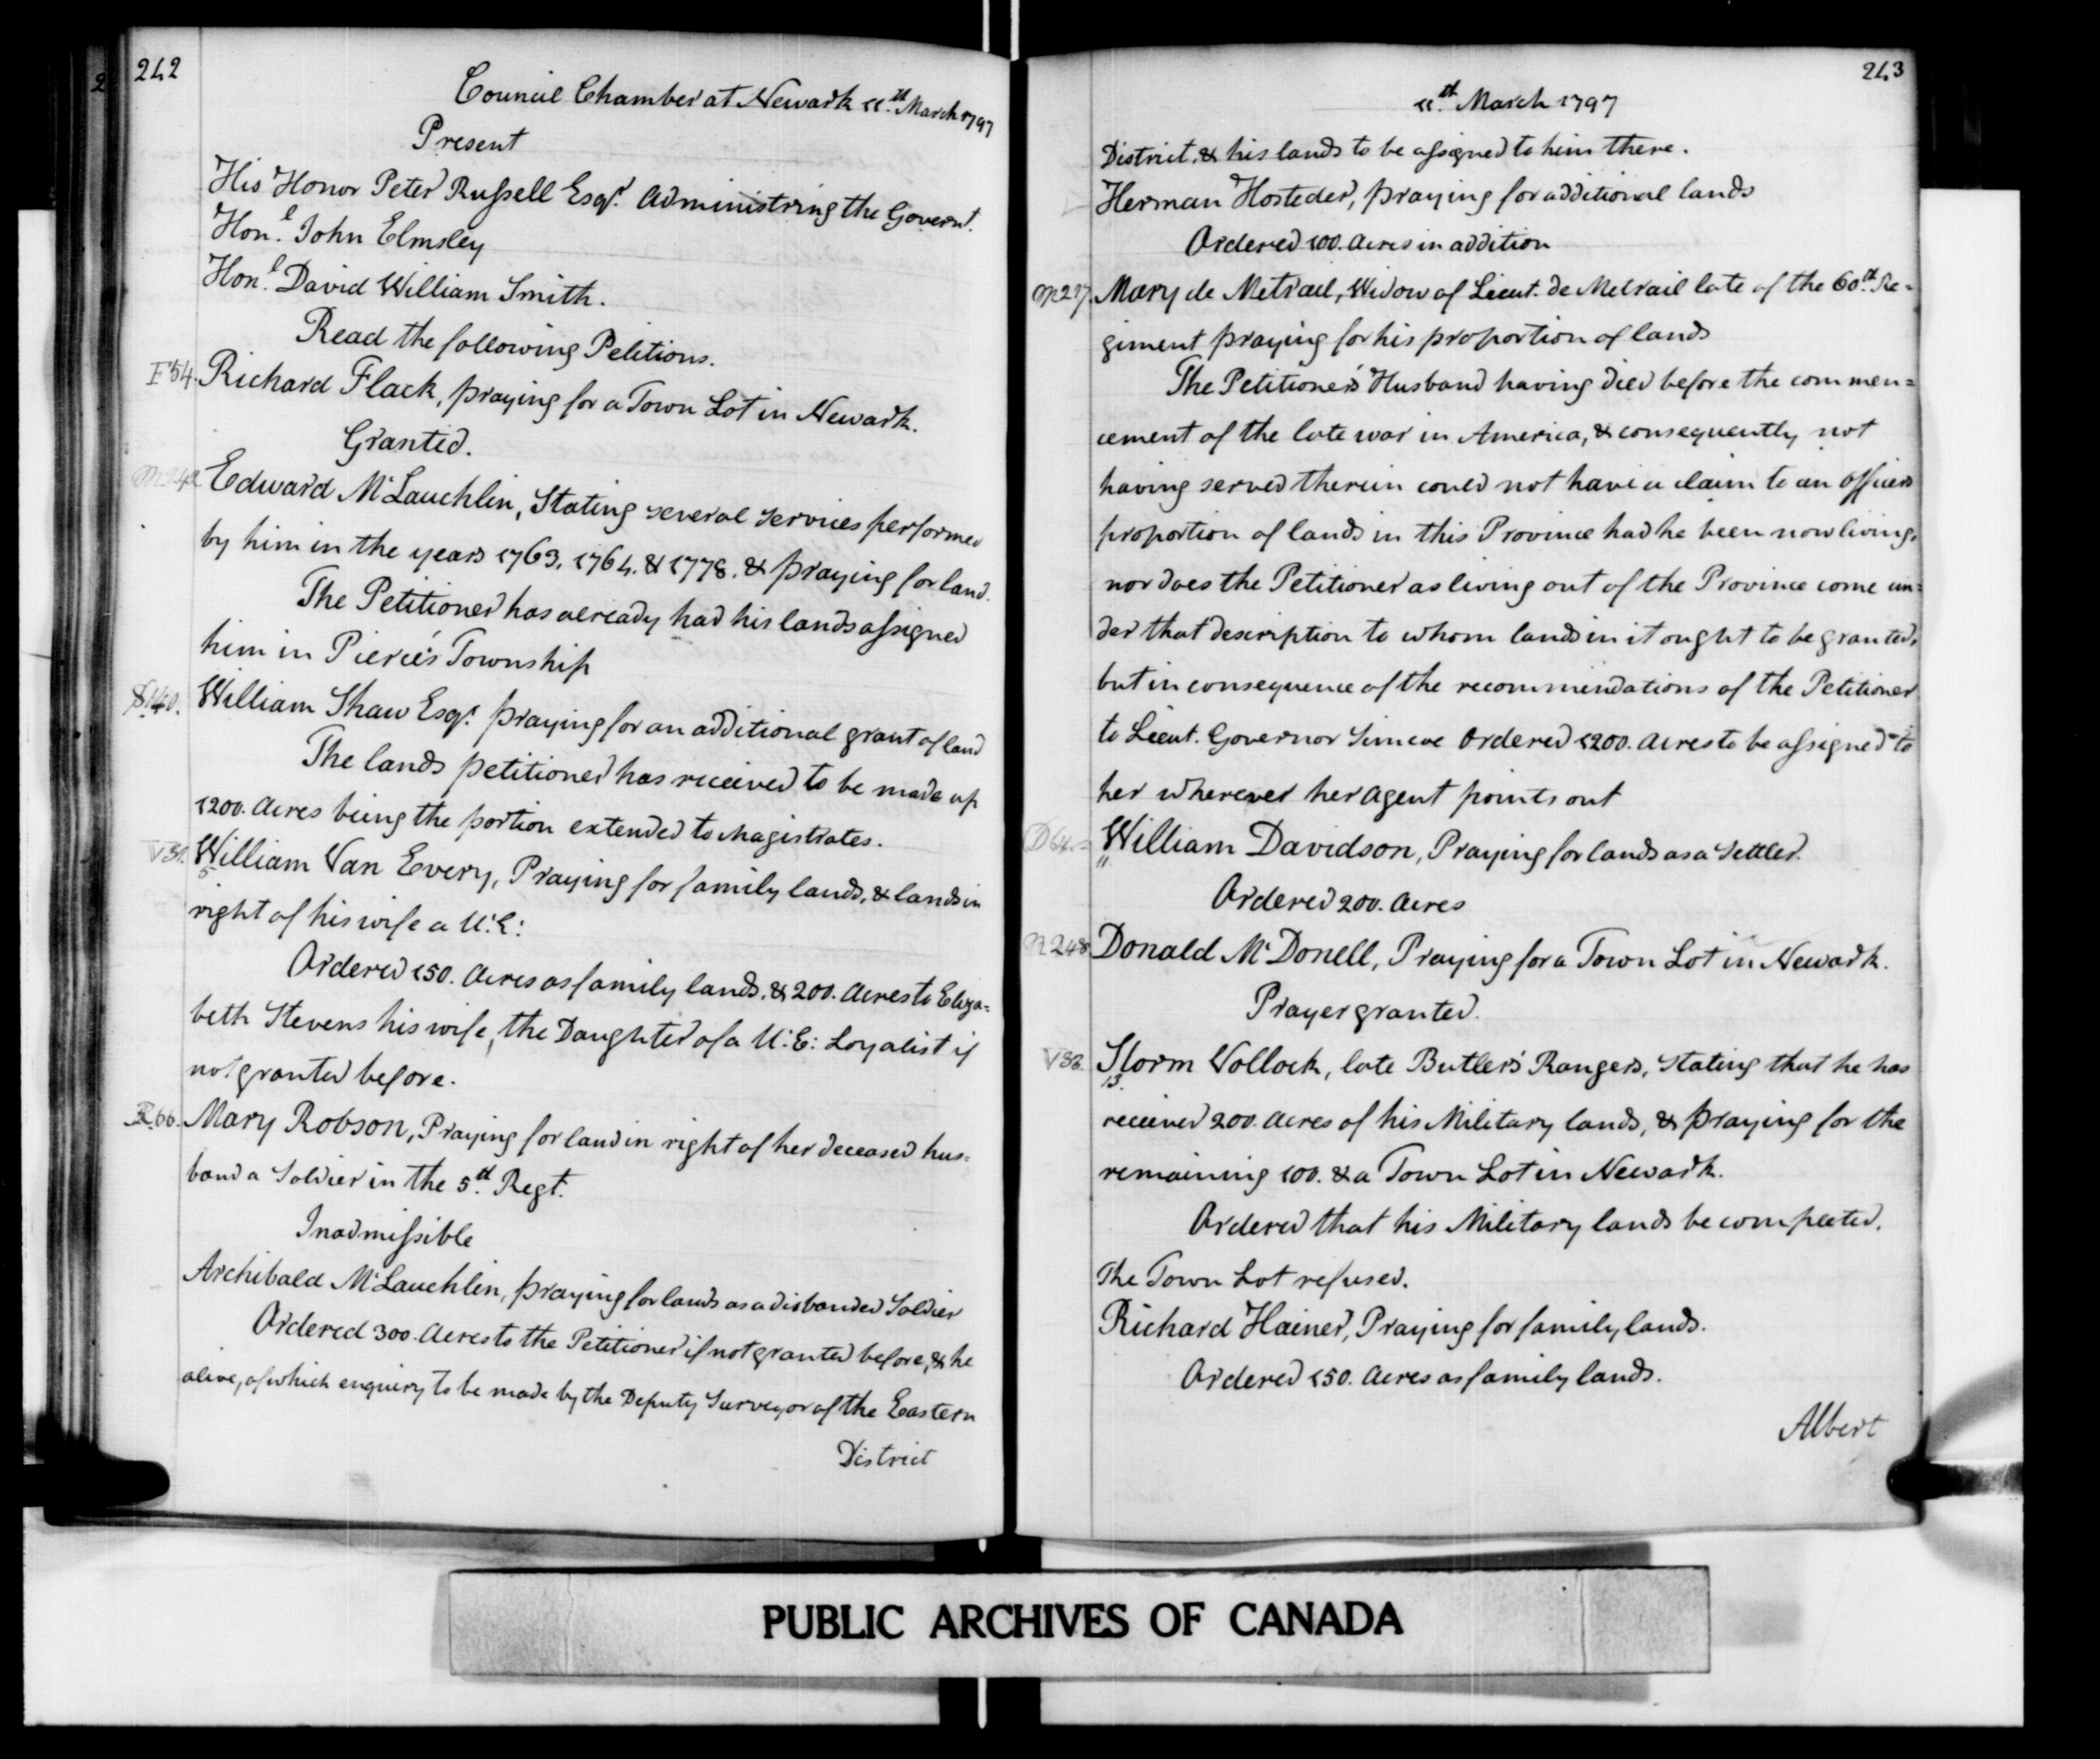 242
Council Chamber at Newark 11th March 1797
Present
His Honor Peter Russell Esqr. Administring the Governt.
Honl. John Elmsley
Honl. David William Smith.
Read the following Petitions.
F54. Richard Flack, praying for a Town Lot in Newark.
Granted.
M242 Edward McLauchlin, Stating several services performed
by him in the years 1763, 1764. & 1778. & praying for land.
The Petitioner has already had his lands assigned
him in Pierie's Township
S140. William Shaw Esqr. praying for an additional grant of land
The lands petitioner has received to be made up
1200. Acres being the portion extended to Magistrates.
V31. William Van Every, Praying for family lands, & lands in
right of his wife a U:E:
Ordered 150. Acres as family lands, & 200. Acres to Eliza=
beth Stevens his wife, the Daughter of a U:E: Loyalist if
not granted before.
R66. Mary Robson, Praying for land in right of her deceased hus=
band a Soldier in the 5th. Regt.
Inadmissible
Archibald McLauchlin, praying for lands as a disbanded Soldier
Ordered 300. Acres to the Petitioner if not granted before, & he
alive, of which enquiry to be made by the Deputy Surveyor of the Eastern
District
243
11th. March 1797
District, & his lands to be assigned to him there.
Herman Hosteder, praying for additional lands
Ordered 100. Acres in addition
M237. Mary de Metrail, Widow of Lieut. de Metrail late of the 60th. Re=
giment praying for his proportion of lands
The Petitioner's Husband having died before the commen=
cement of the late war in America, & consequently not
having served therein could not have a claim to an officers
proportion of lands in this Province had he been now living,
nor does the Petitioner as living out of the Province come un=
der that description to whom lands in it ought to be granted,
but in consequence of the recommendations of the Petitioner
to Lieut. Governor Simcoe Ordered 1200. Acres to be assigned to
her wherever her Agent points out
D64. William Davidson, Praying for lands as a Settler.
11
Ordered 200. Acres
M248 Donald McDonell, Praying for a Town Lot in Newark.
Prayer granted.
V32. Storm Vollock, late Butler's Rangers, Stating that he has
13
received 200. Acres of his Military lands, & praying for the
remaining 100. & a Town Lot in Newark.
Ordered that his Military lands be completed.
The Town Lot refused.
Richard Hainer, Praying for family lands.
Ordered 150. Acres as family lands.
Albert
PUBLIC ARCHIVES OF CANADA